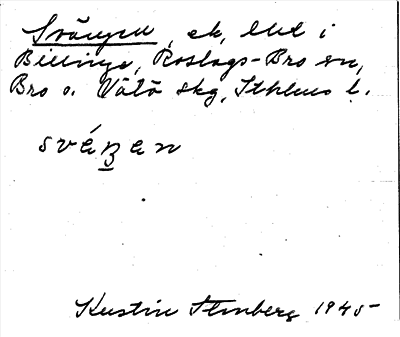 Svängen, ek, bland i
Billinge, Roslags-Bro sn,
Bro o. Vätö skg, Sthlms l.
svéŋen
Kerstin Stenberg 1945